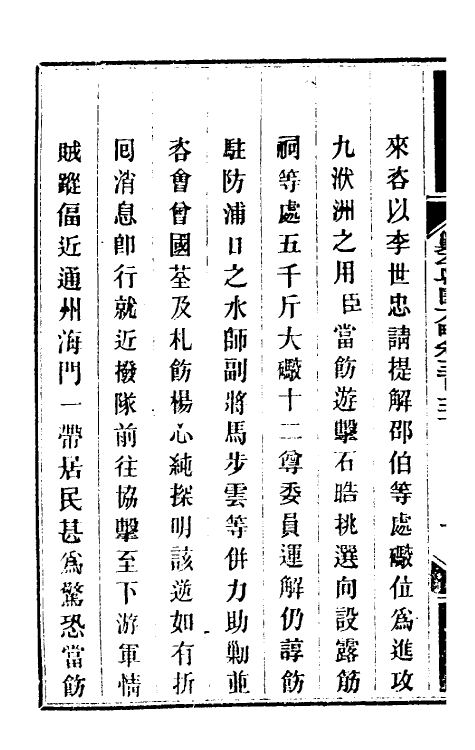 來咨以李世忠請提解邵伯等處礮位爲進攻
九洑洲之用臣當飭遊擊石皓挑選向設露筋
祠等處五千斤大礮十二尊委員運解仍諄飭
駐防浦口之水師副將馬步雲等併力助勦並
咨會曾國荃及札飭楊心純探明該逆如有折
囘消息卽行就近撥隊前往協擊至下游軍情
賊蹤偪近通州海門一帶居民甚爲驚恐當飭